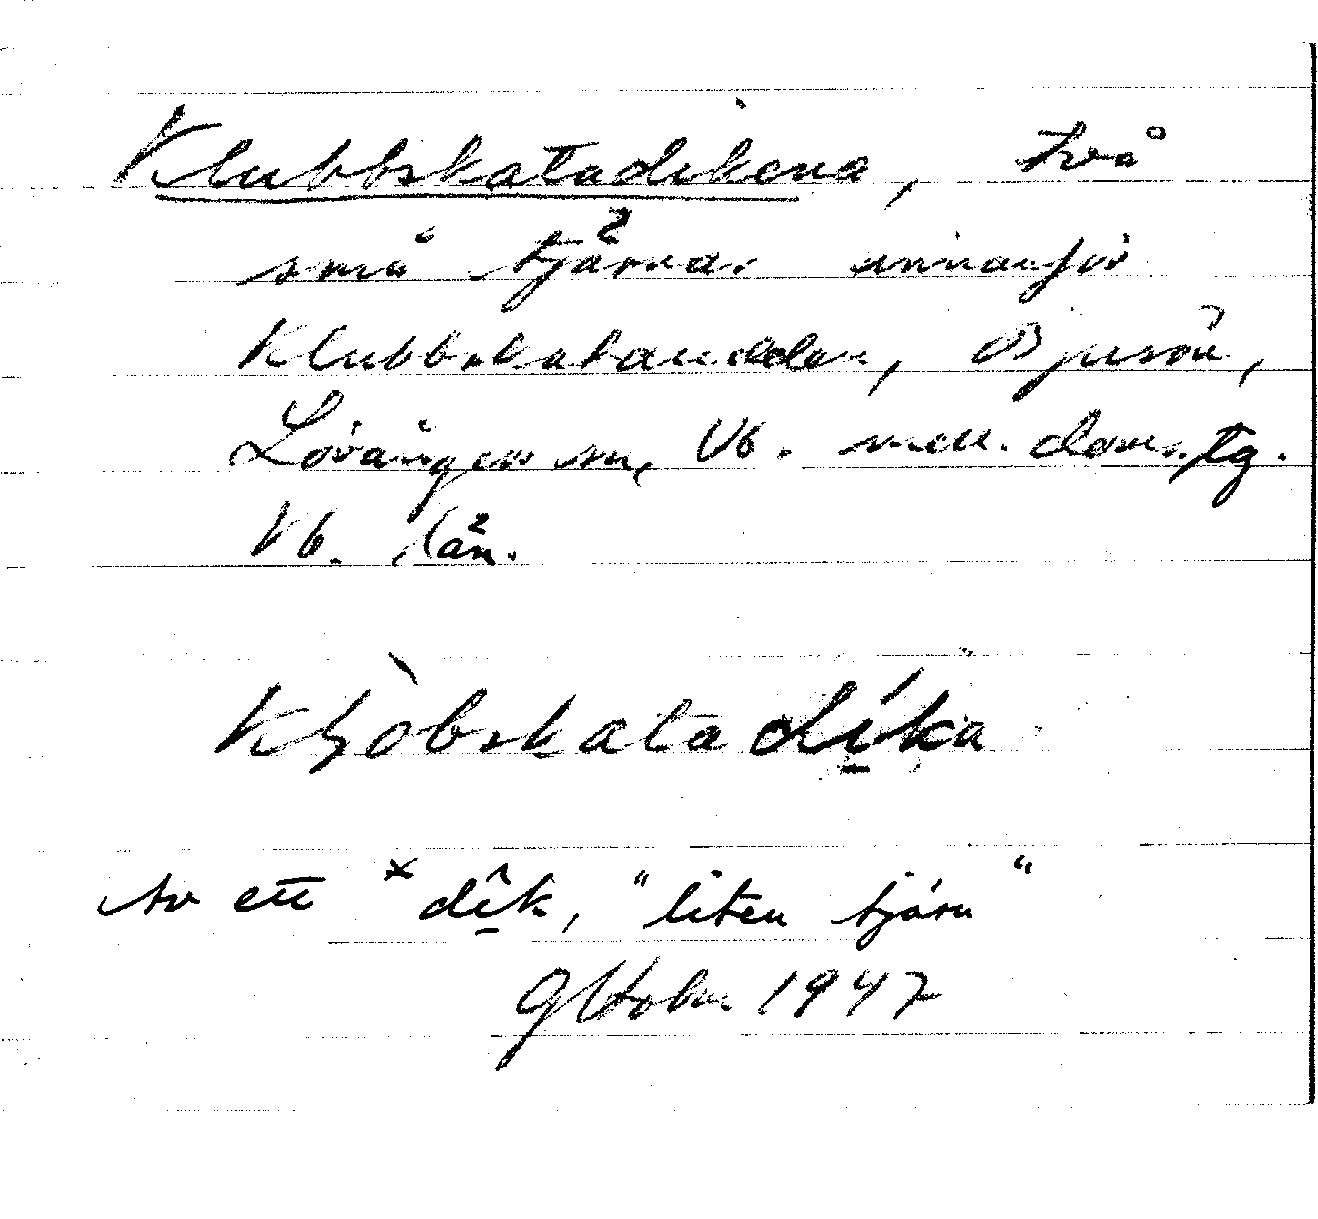 Klubbskatadikena, två
små tjärnar innanför
Klubbskataudden, Bjurön,
Lövångers sn, Vb. mell. doms.tg.
Vb. län.
Kḷòbskatadi̱ka
Av ett *di̱k, "liten tjärn"
1947